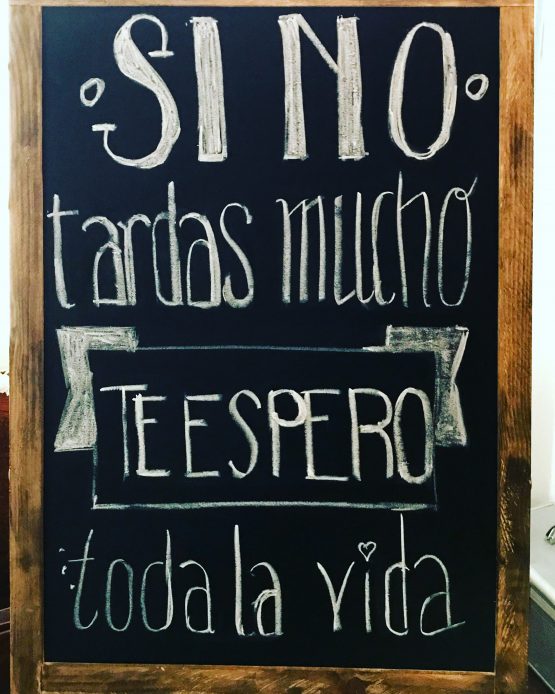 SI NO
tardas mucho
TE ESPERO
toda la vida